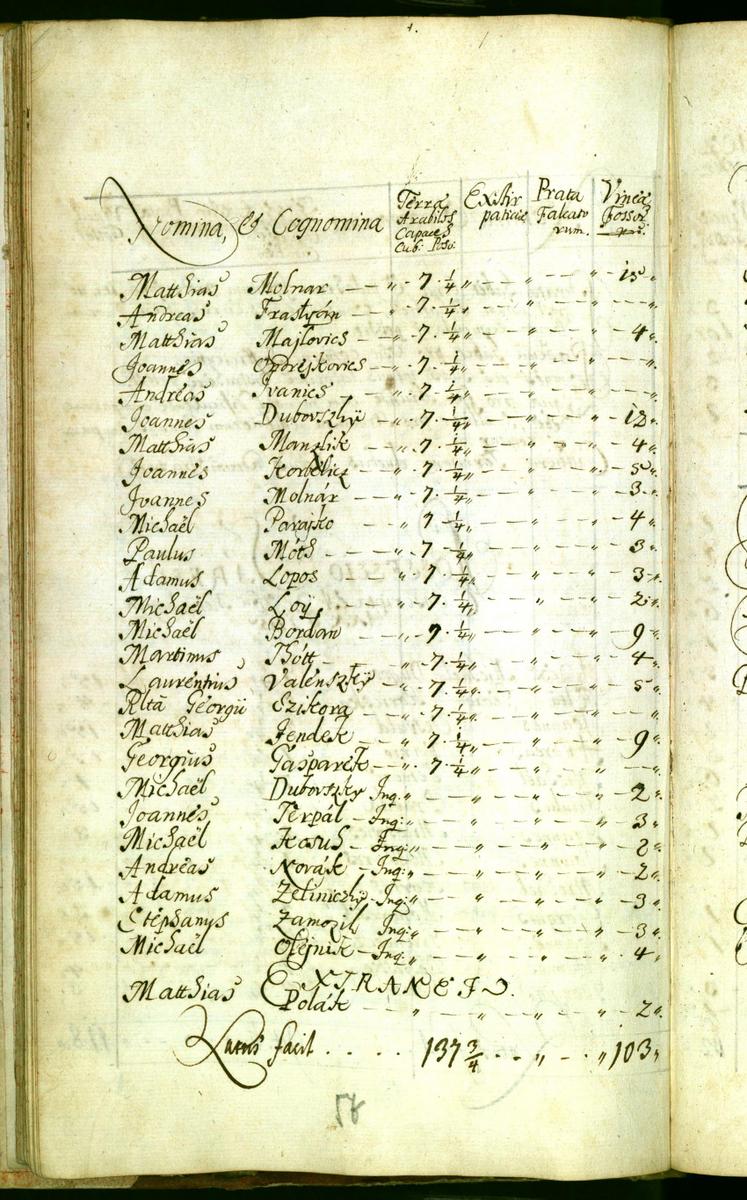 Nomina, et Cognomina
Terra Arabilis Capaces Cub: Poso:
Exstirpaticiae
Prata Falcatorum.
Vinea Fossor
Matthias Molnar — „ 7 1/4 „ — „ — „ 15 „
Andreas — „ 7 1/4 „ — „ — „ — „
Matthias Majlovics — „ 7 1/4 „ — „ — „ 4 „
Joannes Opdrejkovics — „ 7 1/4 „ — „ — „ — „
Andreas Ivanics — „ 7 1/4 „ — „ — „ — „
Joannes Dubovszkÿ — „ 7 1/4 „ — „ — „ 12 „
Matthias Manzlik — „ 7 1/4 „ — „ — „ 4 „
Joannes Korbelicz — „ 7 1/4 „ — „ — „ 5 „
Joannes Molnár — „ 7 1/4 „ — „ — „ 3 „
Michaël Parajko — „ 7 1/4 „ — „ — „ 4 „
Paulus Móth — „ 7 1/4 „ — „ — „ 3 „
Adamus Lopos — „ 7 1/4 „ — „ — „ 3 „
Michaël Loÿ — „ 7 1/4 „ — „ — „ 2 „
Michaël Bordan — „ 7 1/4 „ — „ — „ 9 „
Martinus Thótt — „ 7 1/4 „ — „ — „ 4 „
Laurentius Valenszkÿ — „ 7 1/4 „ — „ — „ 5 „
Rlta Georgii Czikora — „ 7 1/4 „ — „ — „ — „
Matthias Jendek — „ 7 1/4 „ — „ — „ 9 „
Georgius Gasparek — „ 7 1/4 „ — „ — „ — „
Michaël Dubovszky Inq: „ — „ — „ 2 „
Joannes Terpál — Inq: „ — „ — „ 3 „
Michaël — Inq: „ — „ — „ 2 „
Andreas Novák — Inq: „ — „ — „ 2 „
Adamus Zeliniczkÿ Inq: „ — „ — „ 3 „
Stephanys Zamozil Inq: „ — „ — „ 3 „
Michaël Olejnik — Inq: „ — „ — „ 4 „
EXTRANEJ
Matthias Polák — „ — „ — „ 2 „
Latus facit . . . . 137 3/4 . . „ . . „ 103 „